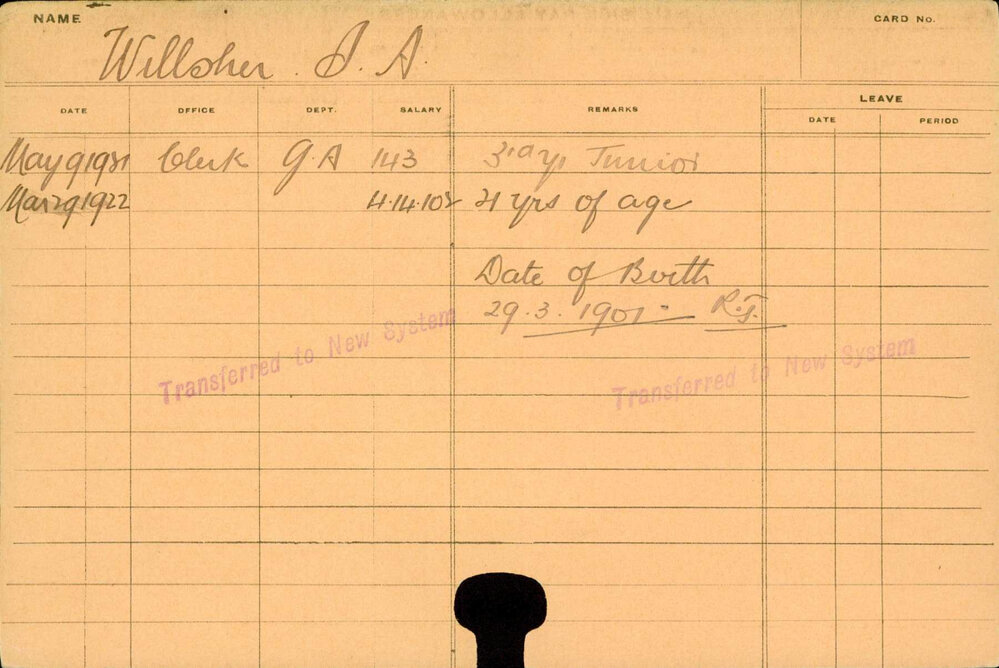 NAME
CARD No.
Willsher. I. A.
DATE OFFICE DEPT. SALARY REMARKS LEAVE
DATE PERIOD
May 9 1921 Clerk G.A 143 3rd yr Junior
Mar 29 1922 4.14.10½ 21 yrs of age
Date of Birth
29.3.1901 - R.J.
Transferred to New System
Transferred to New System